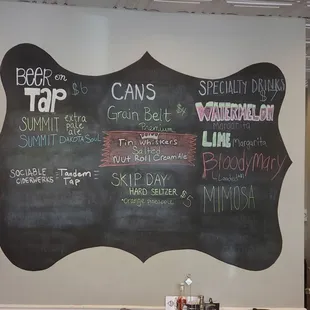 BEER on TAP $6
SUMMIT extra pale ale
SUMMIT DAKOTA Soul
SOCIABLE CIDERWERKS - Tandem Tap
CANS
Grain Belt
Premium
Tin Whiskers
Salted
Nut Roll Cream Ale
SKIP DAY
HARD SELTZER
$5
SPECIALTY DRINKS
WATERMELON
Margarita
LIME Margarita
Bloody Mary
MIMOSA